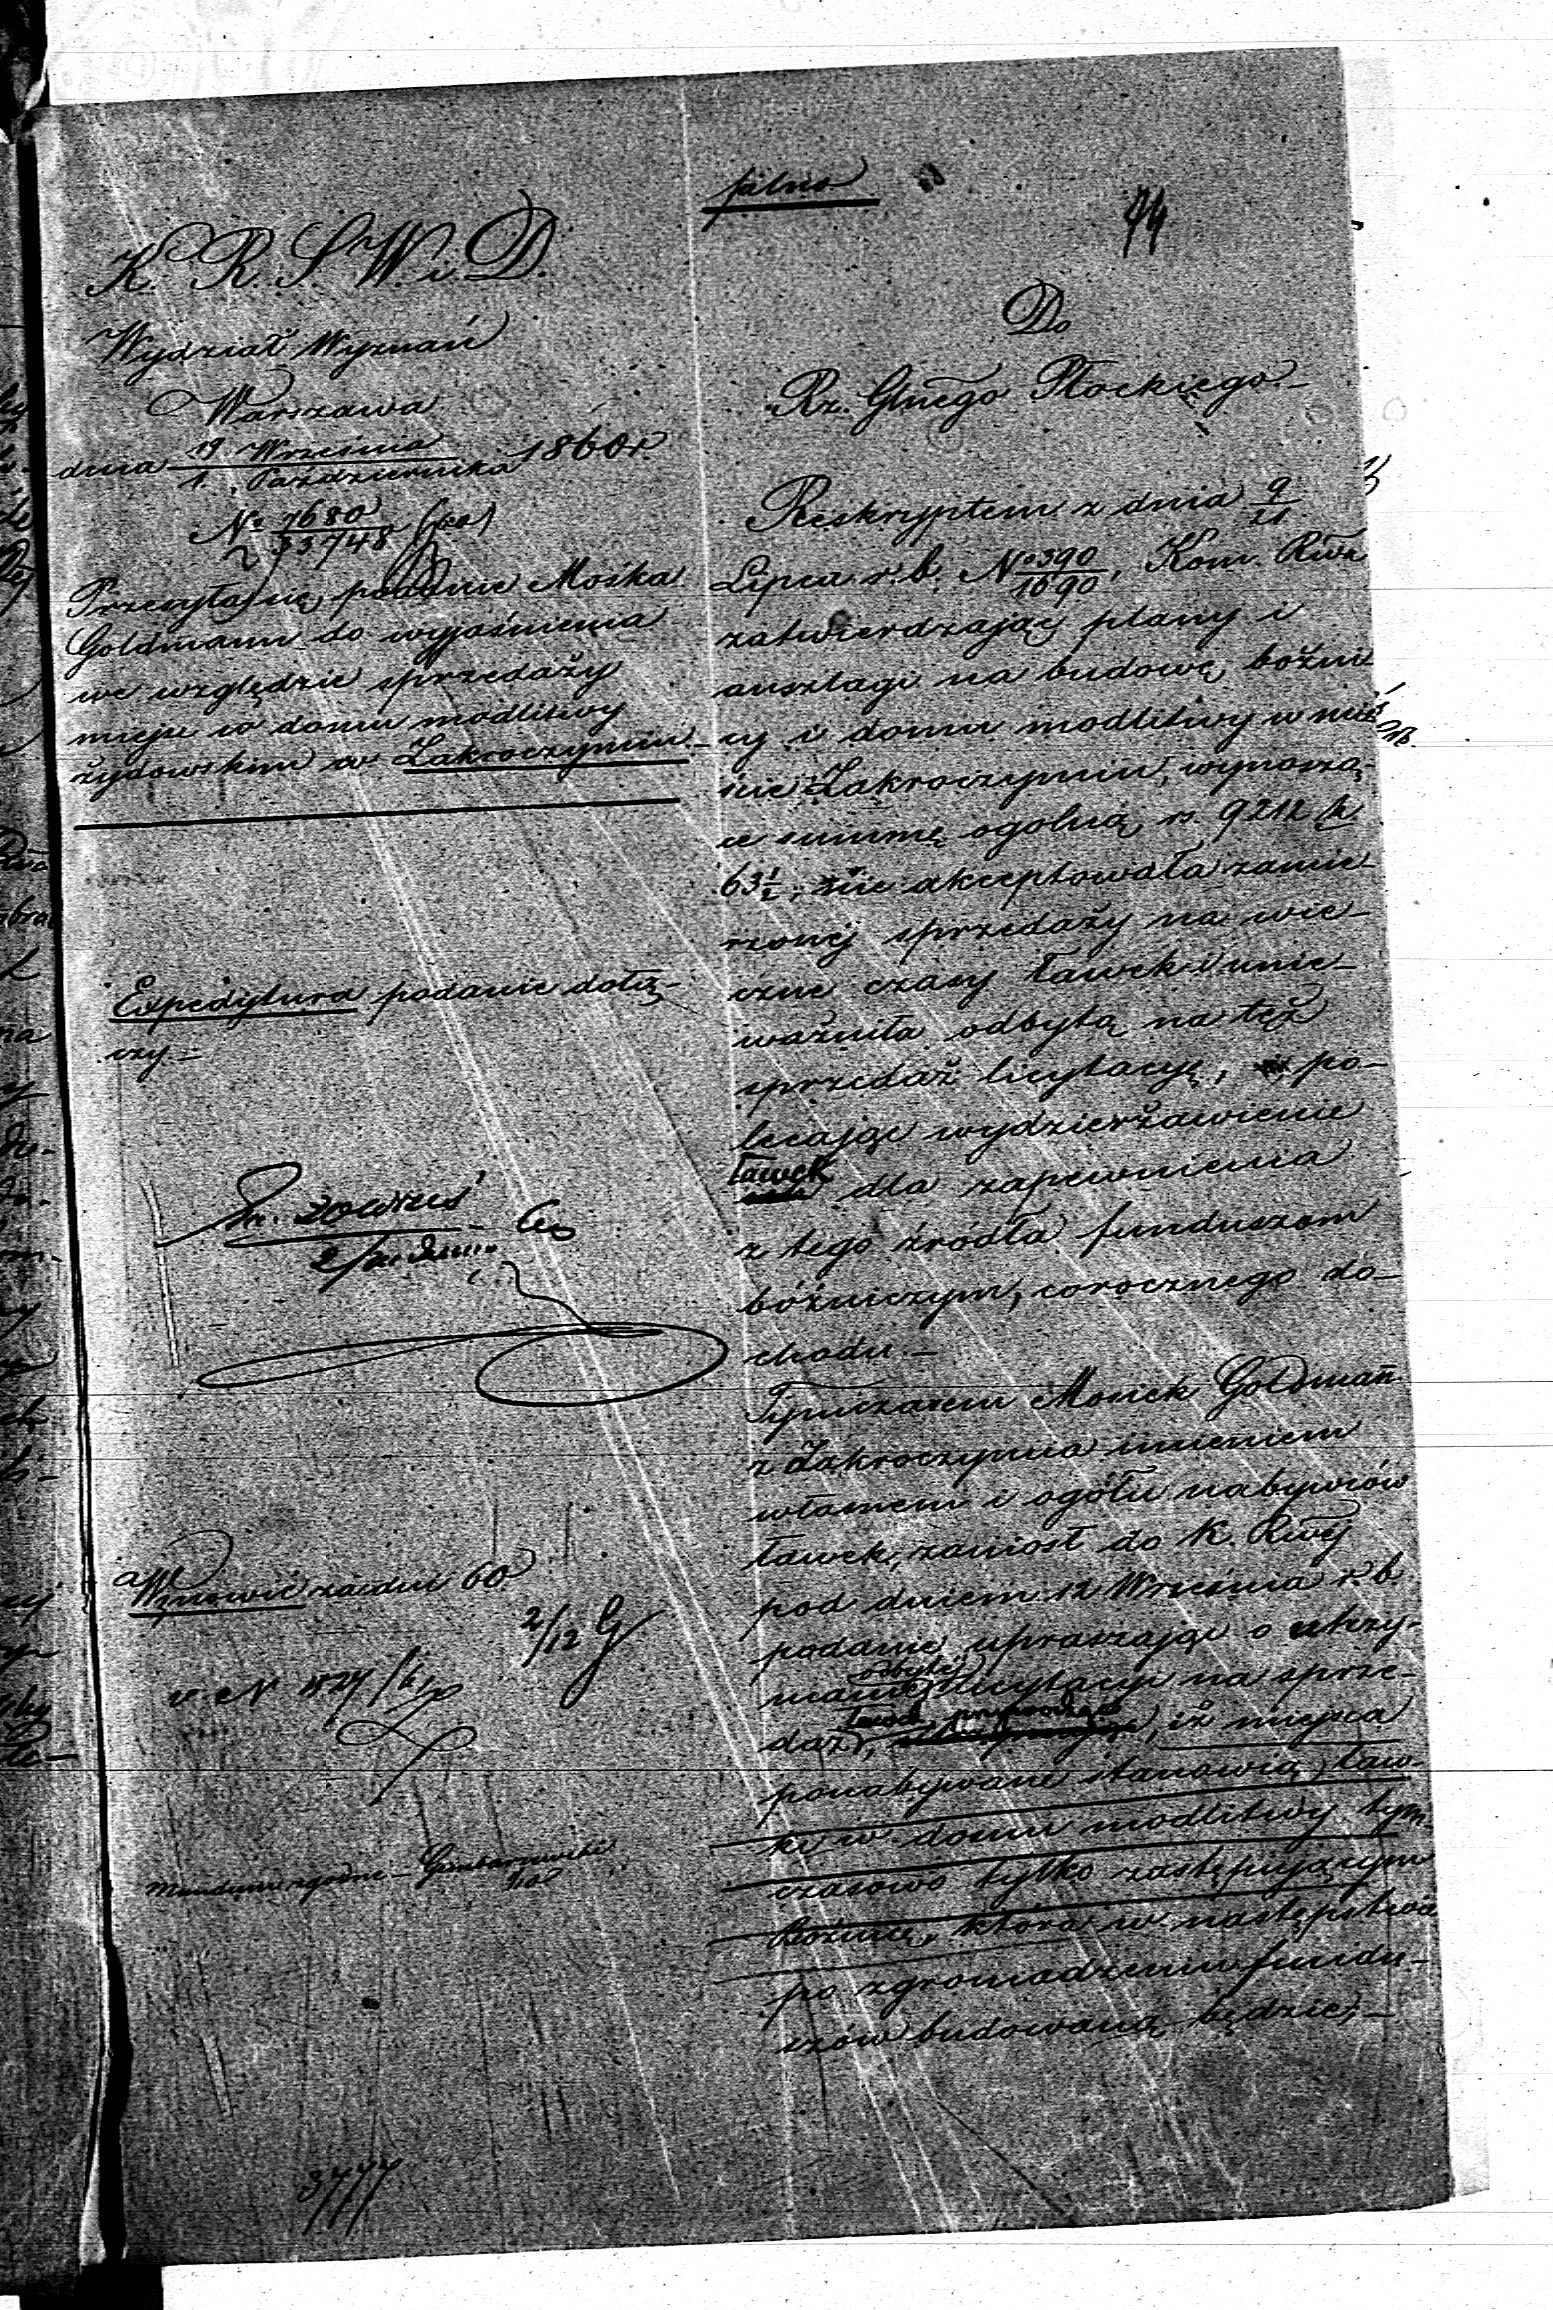 pilno
94
K. R. S. W. i D.
Wydział Wyznań
Warszawa
dnia 19 Września / 1. Października 1860 r.
No 7680 / 33748
Przesyła się podanie Mośka
Goldmann do wyjaśnienia
we względzie sprzedaży
miejsc w domu modlitwy
żydowskim w Zakroczymiu
Expedytura podanie dołą-
czy. –
Wznowić za dni 60
2/12 G
3777
Do
Rz. Glnego Płockiego. –
Reskryptem z dnia 9/21
Lipca r. b. No 390/1690, Kom. Rwa
zatwierdzając plany i
anszlagi na budowę bożni
cy i domu modlitwy w mie
ście Zakroczymiu, wynoszą-
ce summę ogolną rs. 9212 k.
63½, nie akceptowała zamie-
rzonej sprzedaży na wie-
czne czasy ławek i unie-
ważniła odbytą na też
sprzedaż licytacyę, po-
lecając wydzierżawienie
ławek dla zapewnienia
z tego źródła funduszom
bóżniczym, corocznego do-
chodu –
Tymczasem Mosiek Goldman
z Zakroczymia imieniem
własnem i ogółu nabywców
ławek, zaniosł do K. Rwej
pod dniem 12 Września r. b.
podanie upraszając o utrzy-
manie odbytej licytacyi na sprze-
daż ławek, iż miejsca
ponabywane stanowią ław-
ki w domu modlitwy tym
czasowo tylko zastępującym
Bóżnicę, która w następstwie
po zgromadzeniu fundu-
szów budowaną będzie; –